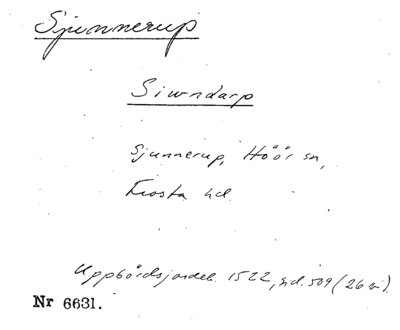 Sjunnerup
Siwndarp
Sjunnerup, Höör sn,
Frosta hd.
Uppbördsjordeb. 1522, sid. 509 (26 v).
Nr 6631.